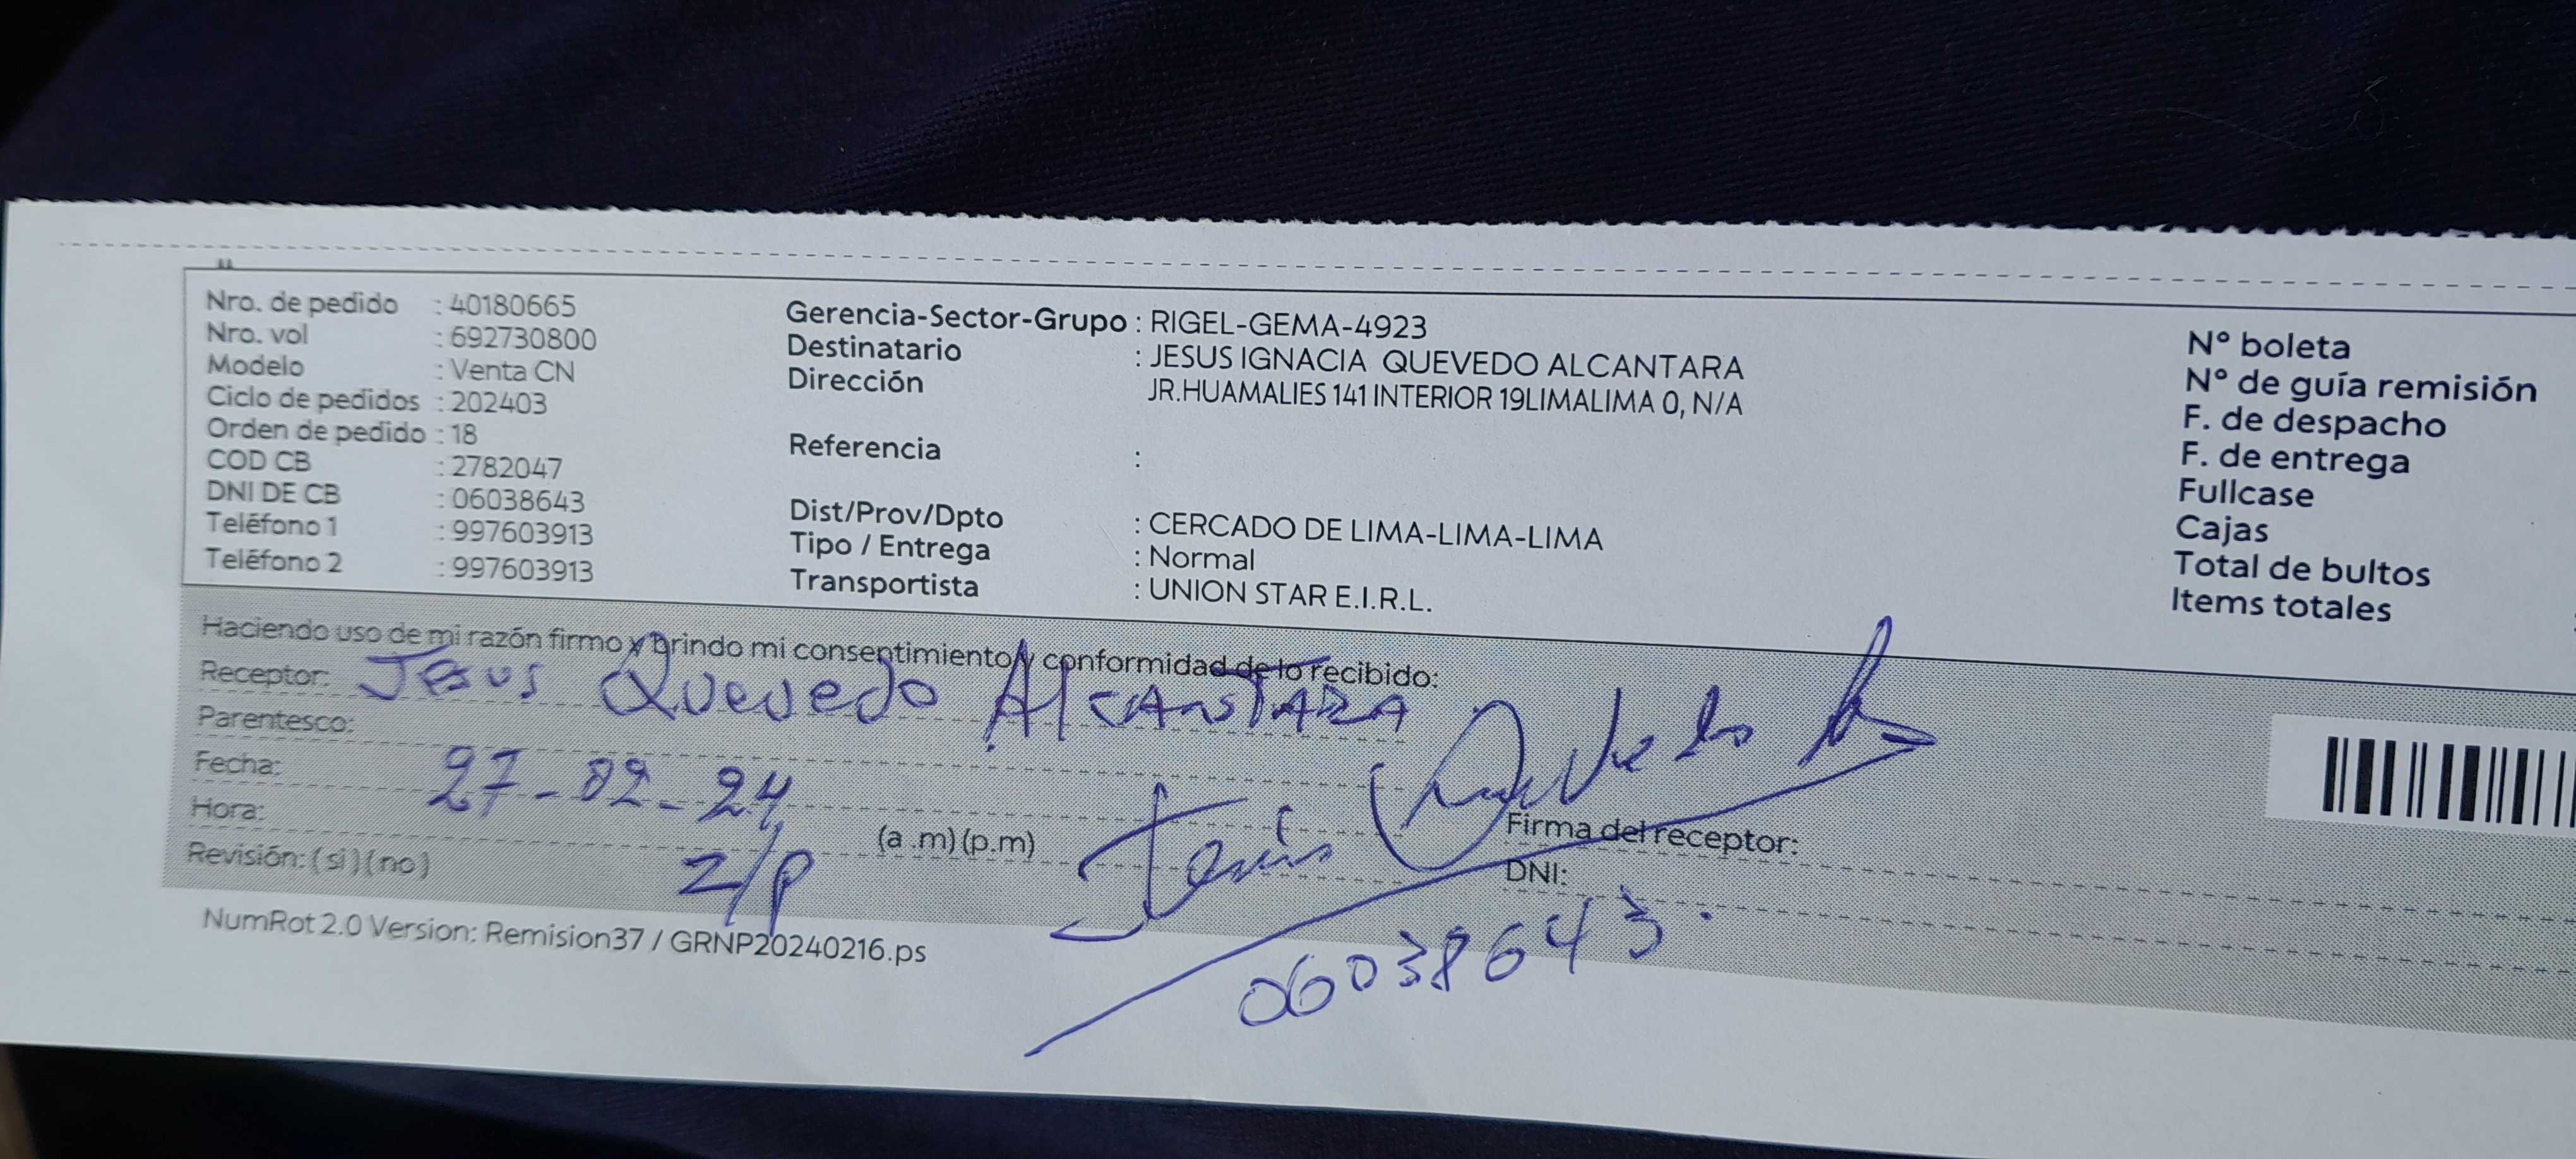 Nro. de pedido : 40180665
Nro. vol : 692730800
Modelo : Venta CN
Ciclo de pedidos : 202403
Orden de pedido : 18
COD CB : 2782047
DNI DE CB : 06038643
Teléfono 1 : 997603913
Teléfono 2 : 997603913
Gerencia-Sector-Grupo : RIGEL-GEMA-4923
Destinatario : JESUS IGNACIA QUEVEDO ALCANTARA
Dirección JR.HUAMALIES 141 INTERIOR 19LIMALIMA 0, N/A
Referencia :
Dist/Prov/Dpto : CERCADO DE LIMA-LIMA-LIMA
Tipo / Entrega : Normal
Transportista : UNION STAR E.I.R.L.
N° boleta
N° de guía remisión
F. de despacho
F. de entrega
Fullcase
Cajas
Total de bultos
Items totales
Haciendo uso de mi razón firmo y brindo mi consentimiento y conformidad de lo recibido:
Receptor: Jesus Quevedo Alcantara
Parentesco:
Fecha: 27-02-24
Hora: (a .m) (p.m)
Revisión: (si) (no) z/p
Jesús Quevedo A
Firma del receptor:
DNI:
06038643.
NumRot 2.0 Version: Remision37 / GRNP20240216.ps